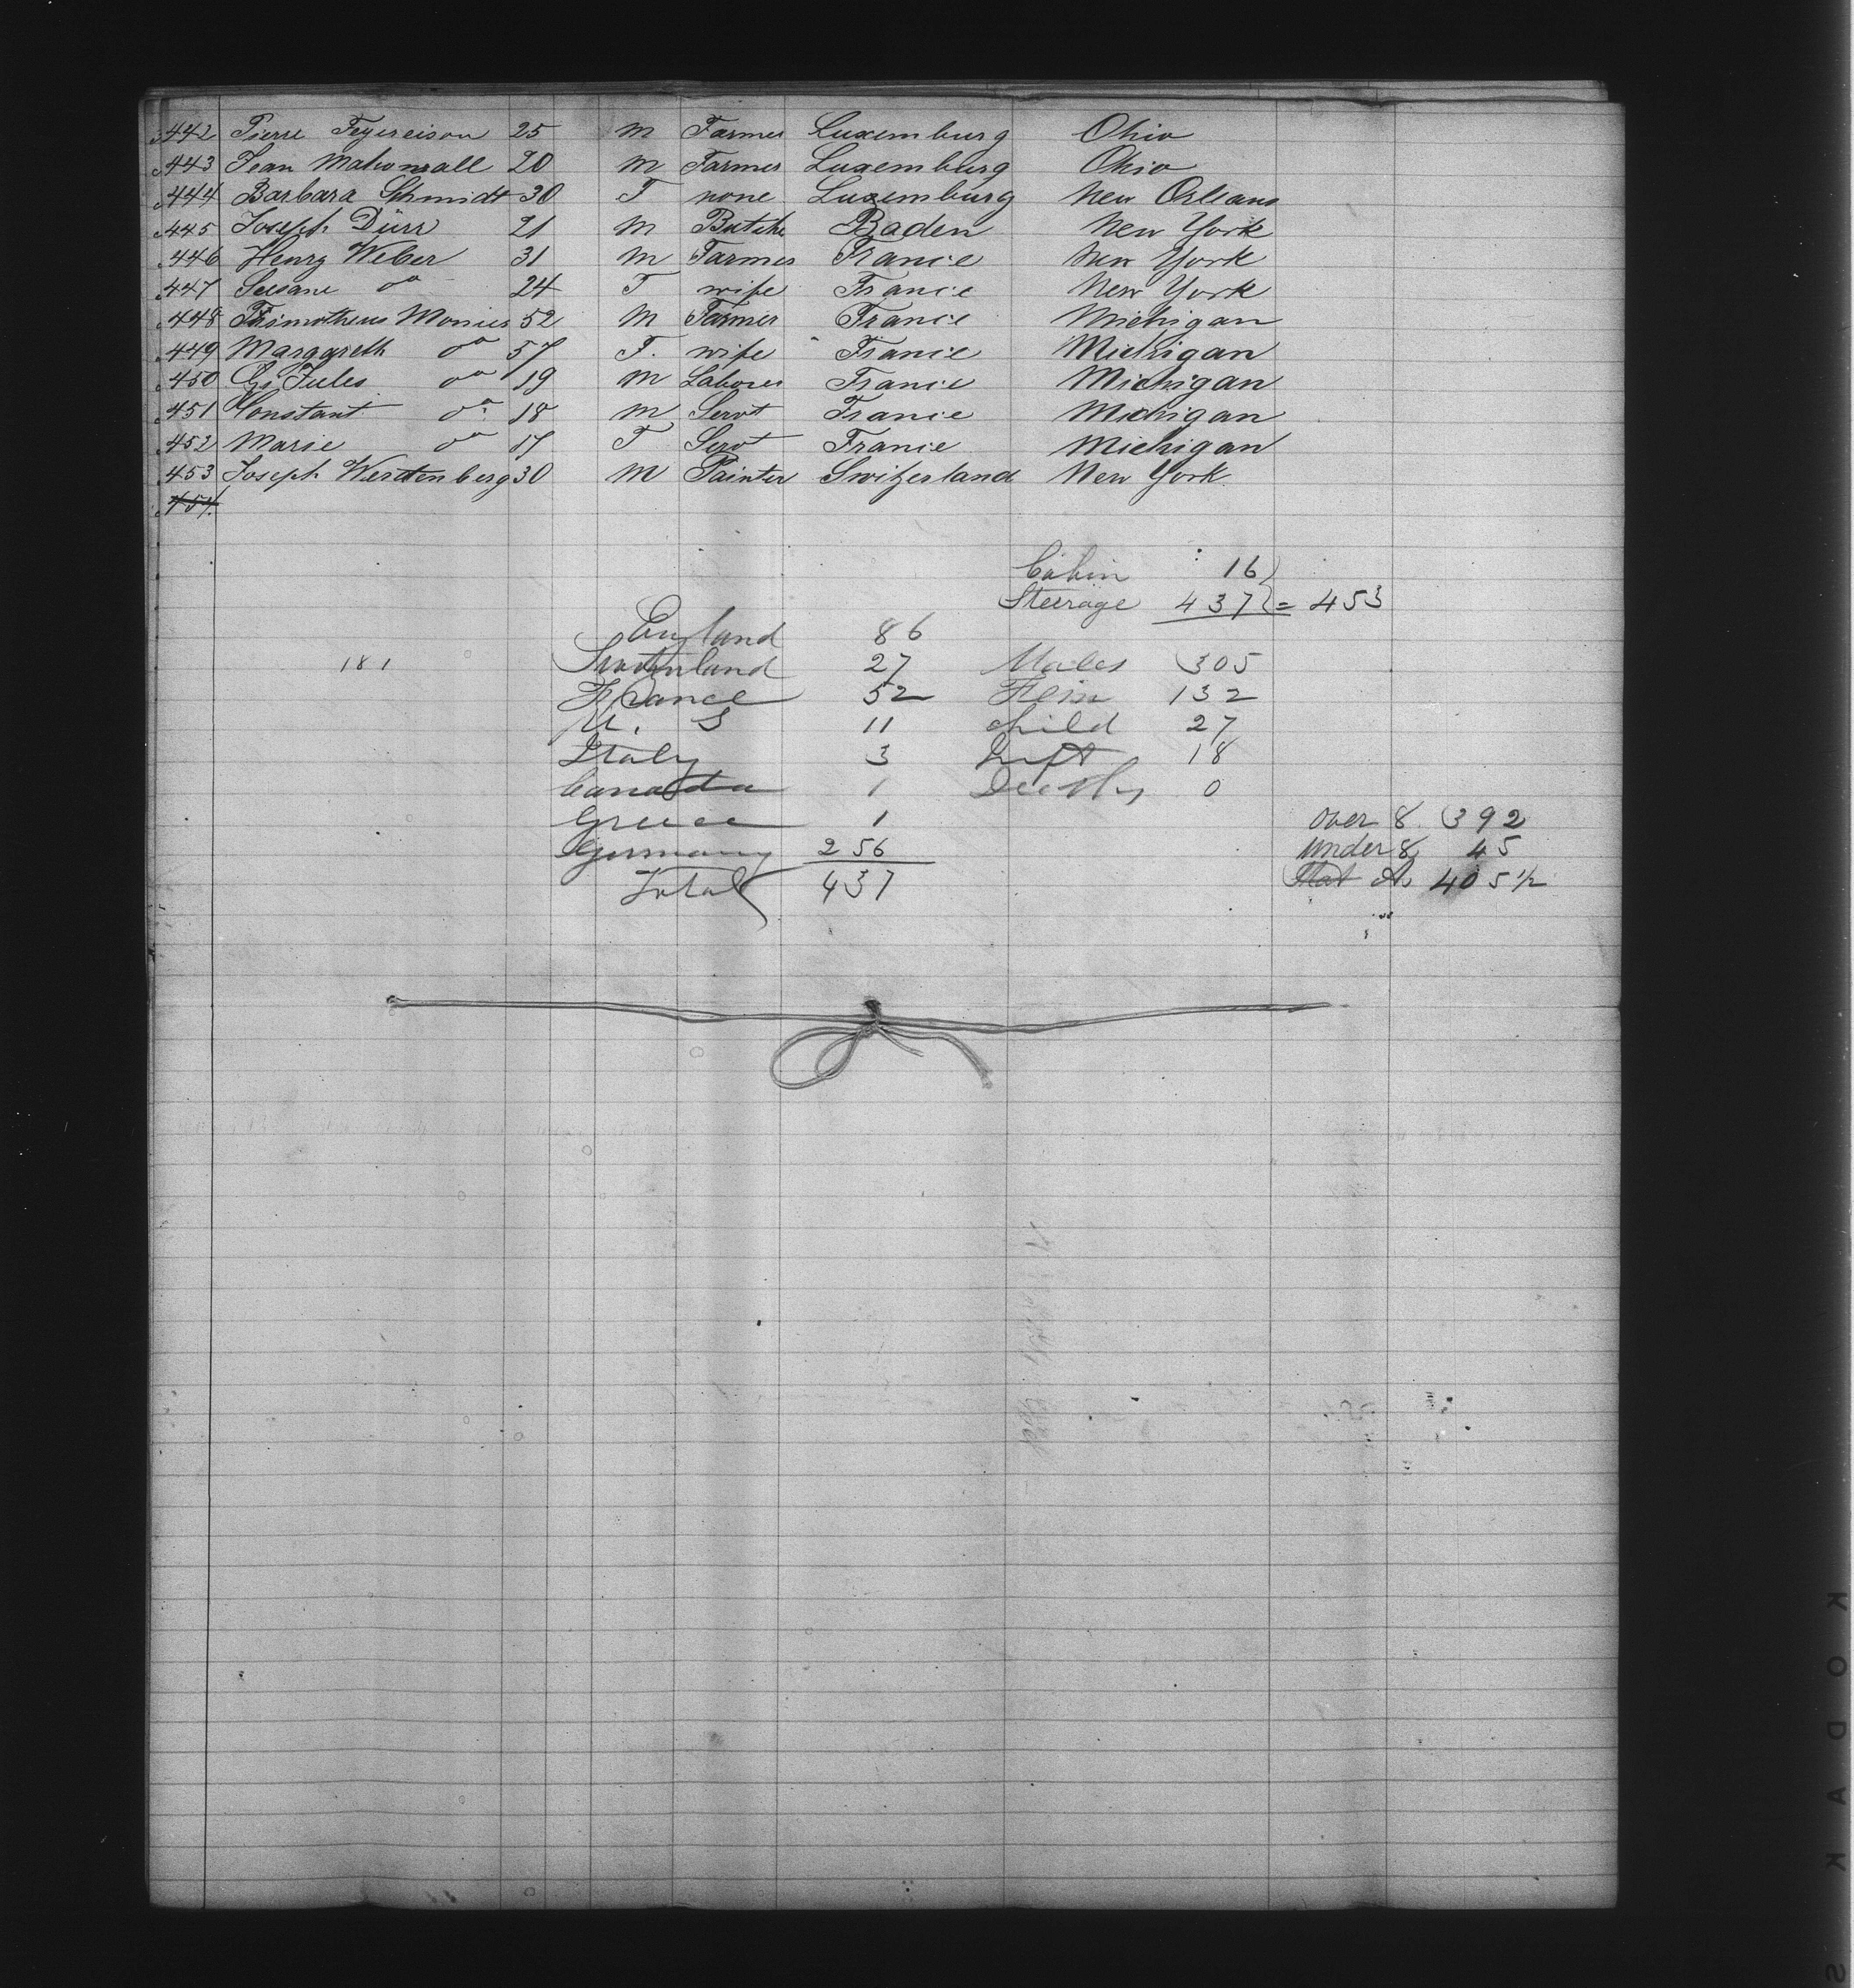 442 Pierre Feyereison 25 M Farmer Luxemburg Ohio
443 Jean 20 M Farmer Luxemburg Ohio
444 Barbara Schmidt 30 F none Luxemburg New Orleans
445 Joseph Dürr 21 M Butche Baden New York
446 Henry Weber 31 M Farmer France New York
447 Susane do 24 F wife France New York
448 Thimotheus Monier 52 M Farmer France Michigan
449 Marggreth do 57 F. wife France Michigan
450 Jules do 19 M Laborer France Michigan
451 Constant do 18 M Servt France Michigan
452 Marie do 17 F Servt France Michigan
453 Joseph Werdtenberg 30 M Painter Switzerland New York
454
Cabin 16
Steerage 437 = 453
England 86
181 Switzerland 27 Males 305
France 52 Fem 132
U. S 11 child 27
Italy 3 Inft 18
Canada 1 Deaths 0
Greece 1 over 8 392
Germany 256 under 8 45
Total 437 Stat 405 1/2
KODAK S